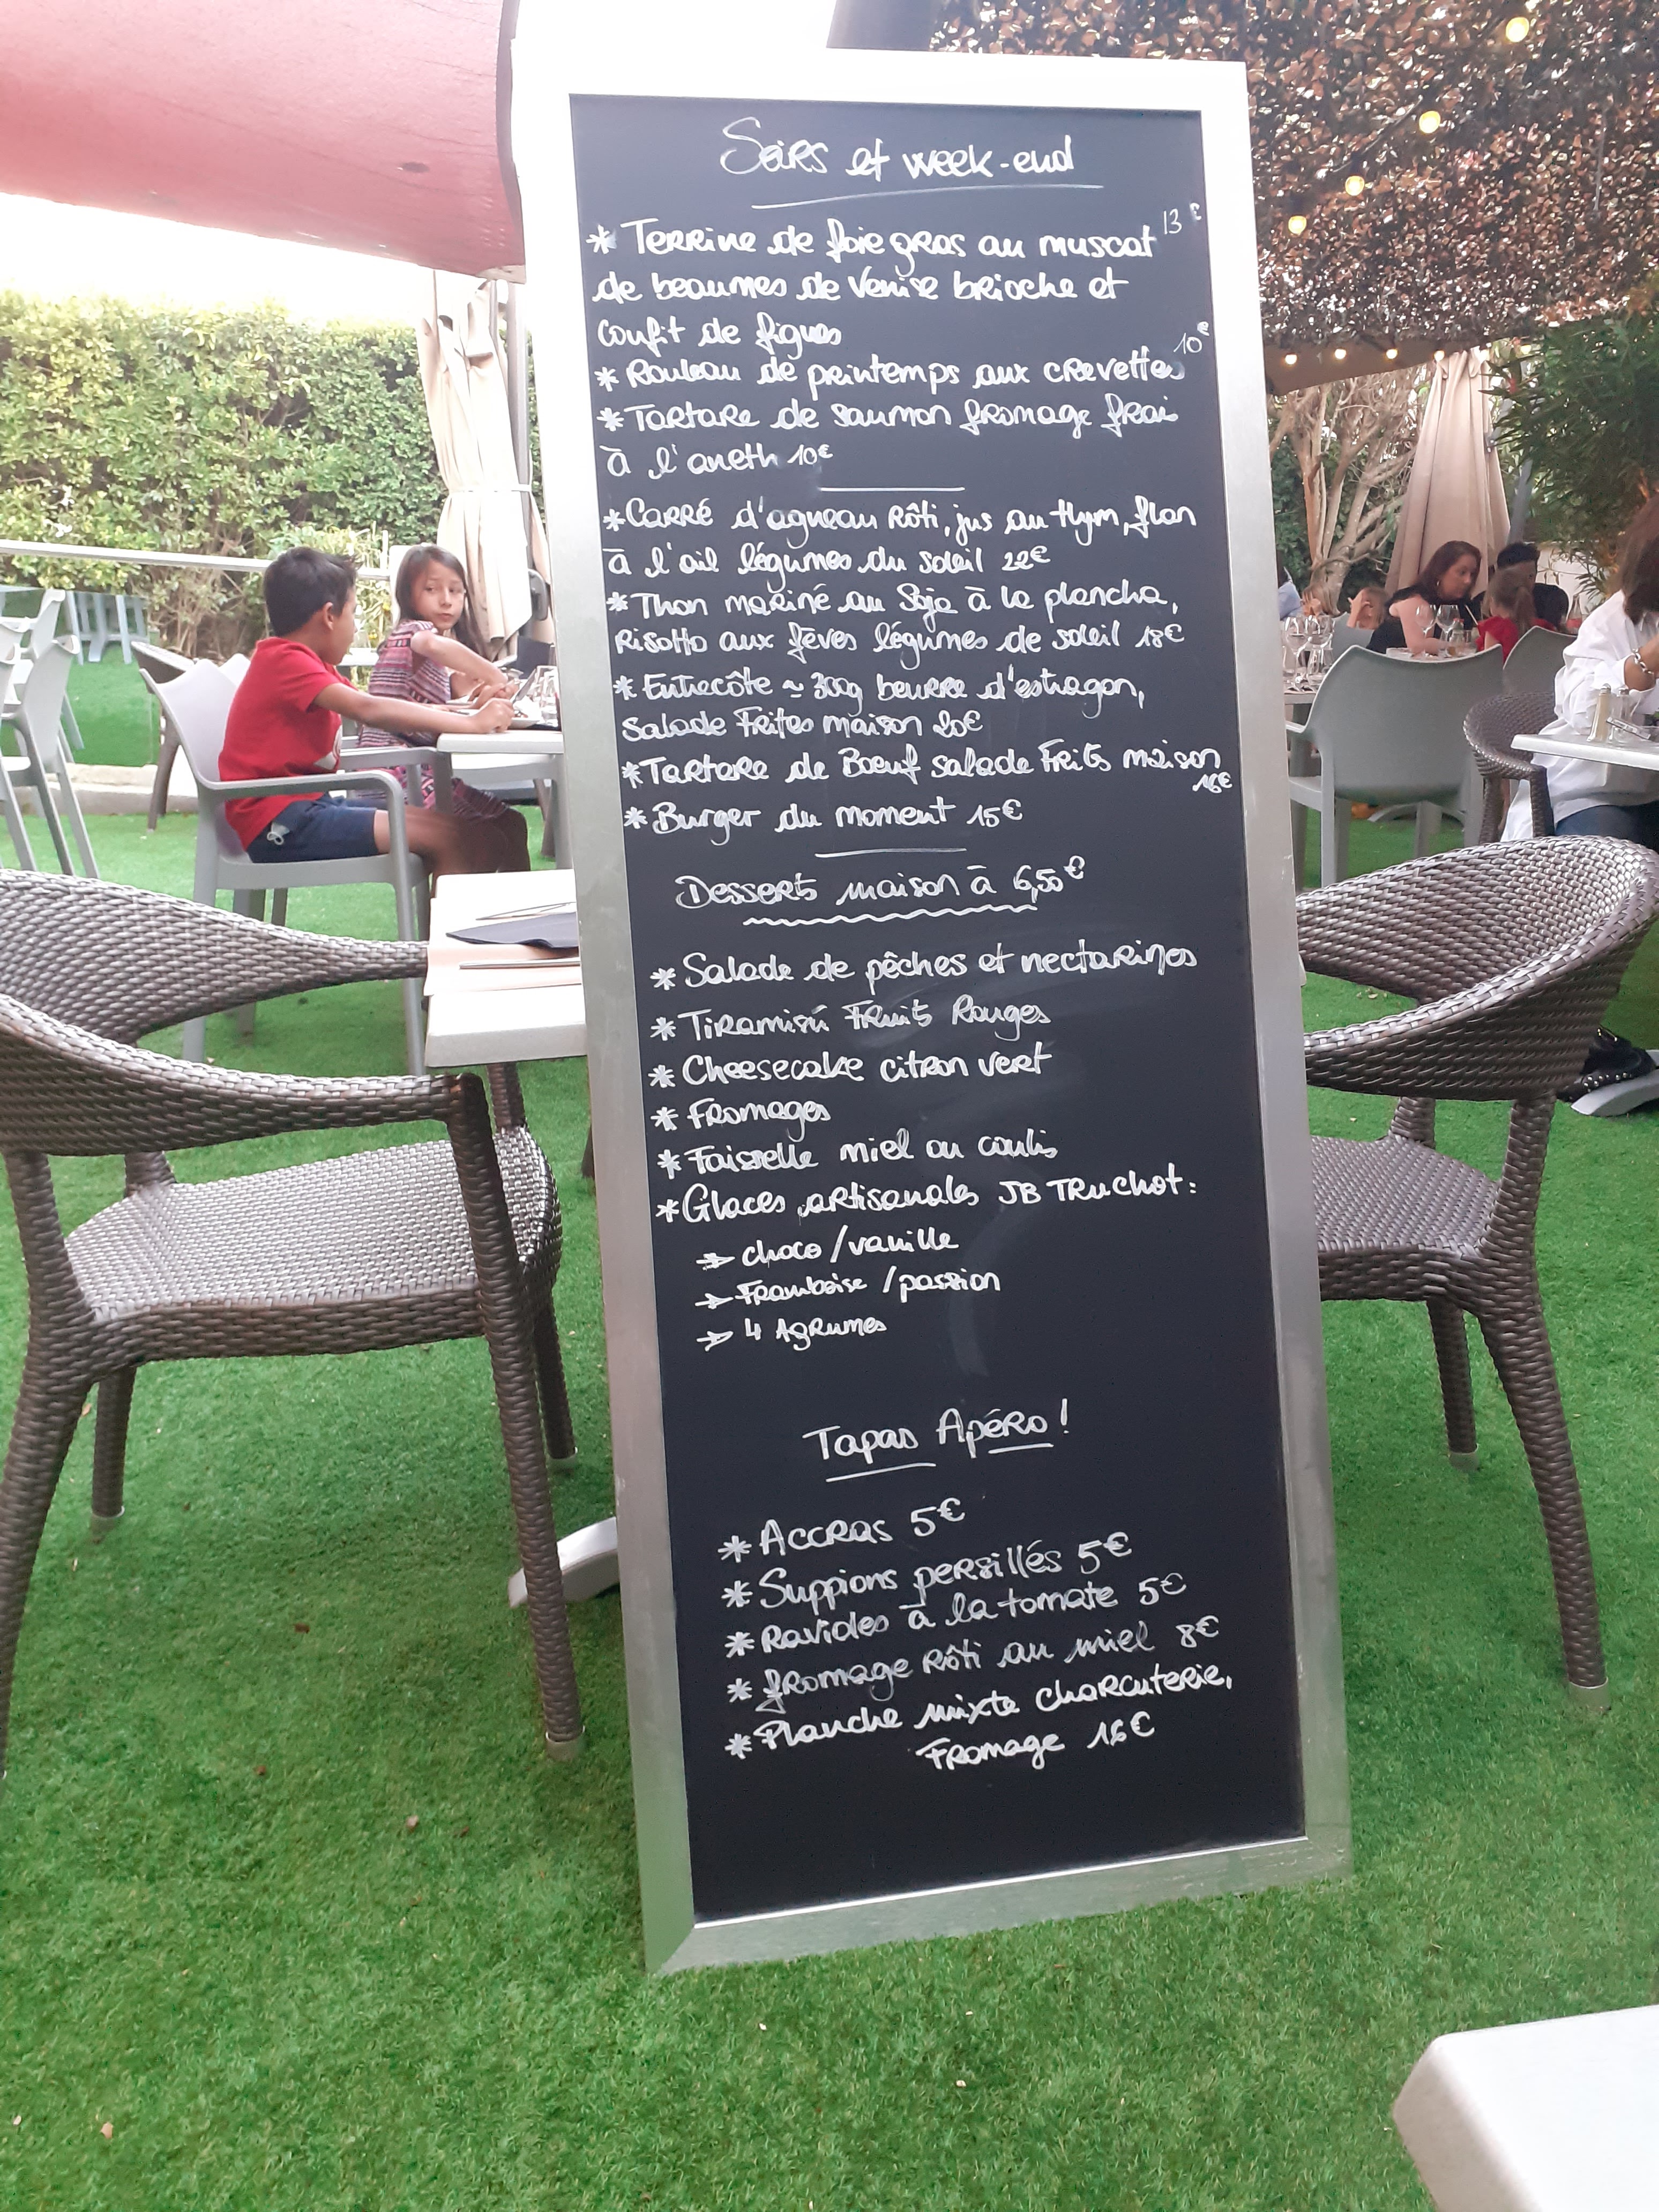 Soirs et week-end
* Terrine de foie gras au muscat 13€
de beaumes de Venise brioche et
confit de figues
* Rouleau de printemps aux crevettes 10€
* Tartare de saumon fromage frais
à l'aneth 10€
* Carré d'agneau rôti, jus au thym, flan
à l'ail légumes du soleil 22€
* Thon mariné au Soja à la plancha,
Risotto aux fèves légumes de soleil 18€
* Entrecôte ≈ 300g beurre d'estragon,
salade Frites maison 20€
* Tartare de Boeuf salade Frites maison
16€
* Burger du moment 15€
Desserts maison à 6,50€
* Salade de pêches et nectarines
* Tiramisù Fruits Rouges
* Cheesecake citron vert
* Fromages
* Faisselle miel ou coulis
* Glaces artisanales JB Truchot :
→ choco / vanille
→ Framboise / passion
→ 4 Agrumes
Tapas Apéro !
* Accras 5€
* Suppions persillés 5€
* Ravioles à la tomate 5€
* fromage Rôti au miel 8€
* Planche mixte charcuterie,
Fromage 16€